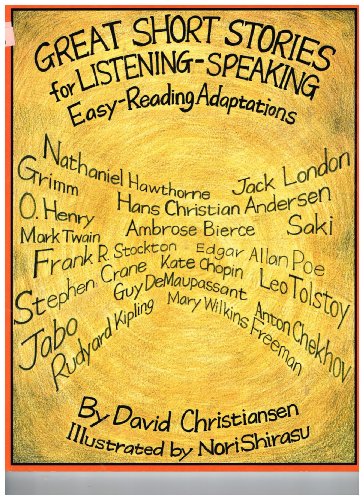 GREAT SHORT STORIES
for LISTENING-SPEAKING
Easy-Reading Adaptations
Nathaniel Hawthorne
Jack London
Grimm
Hans Christian Andersen
O. Henry
Ambrose Bierce
Saki
Mark Twain
Edgar Allan Poe
Frank R. Stockton
Kate Chopin
Leo Tolstoy
Stephen Crane
Guy DeMaupassant
Mary Wilkins Freeman
Anton Chekhov
Jabo
Rudyard Kipling
By David Christiansen
Illustrated by Nori Shirasu